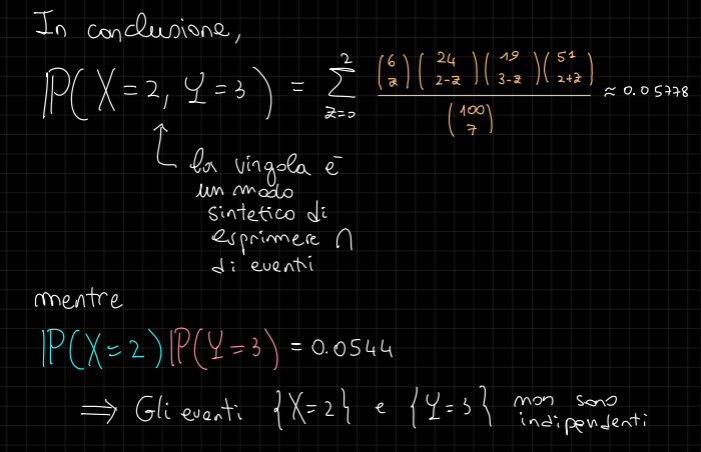 In conclusione,
ℙ(X=2, Y=3) = \sum_{z=0}^{2} \frac{\binom{6}{z}\binom{24}{2-z}\binom{19}{3-z}\binom{51}{2+z}}{\binom{100}{7}} ≈ 0.05778
la virgola è
un modo
sintetico di
esprimere ∩
di eventi
mentre
ℙ(X=2)ℙ(Y=3) = 0.0544
⟹ Gli eventi {X=2} e {Y=3} non sono
indipendenti